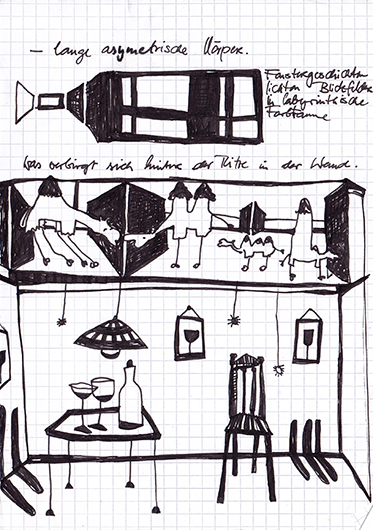 - lange asymetrische Körper.
Fenstergeschichten
lichten Blickfelder
in labyrinthische
Farbräume
Was verbirgt sich hinter der Ritze in der Wand.